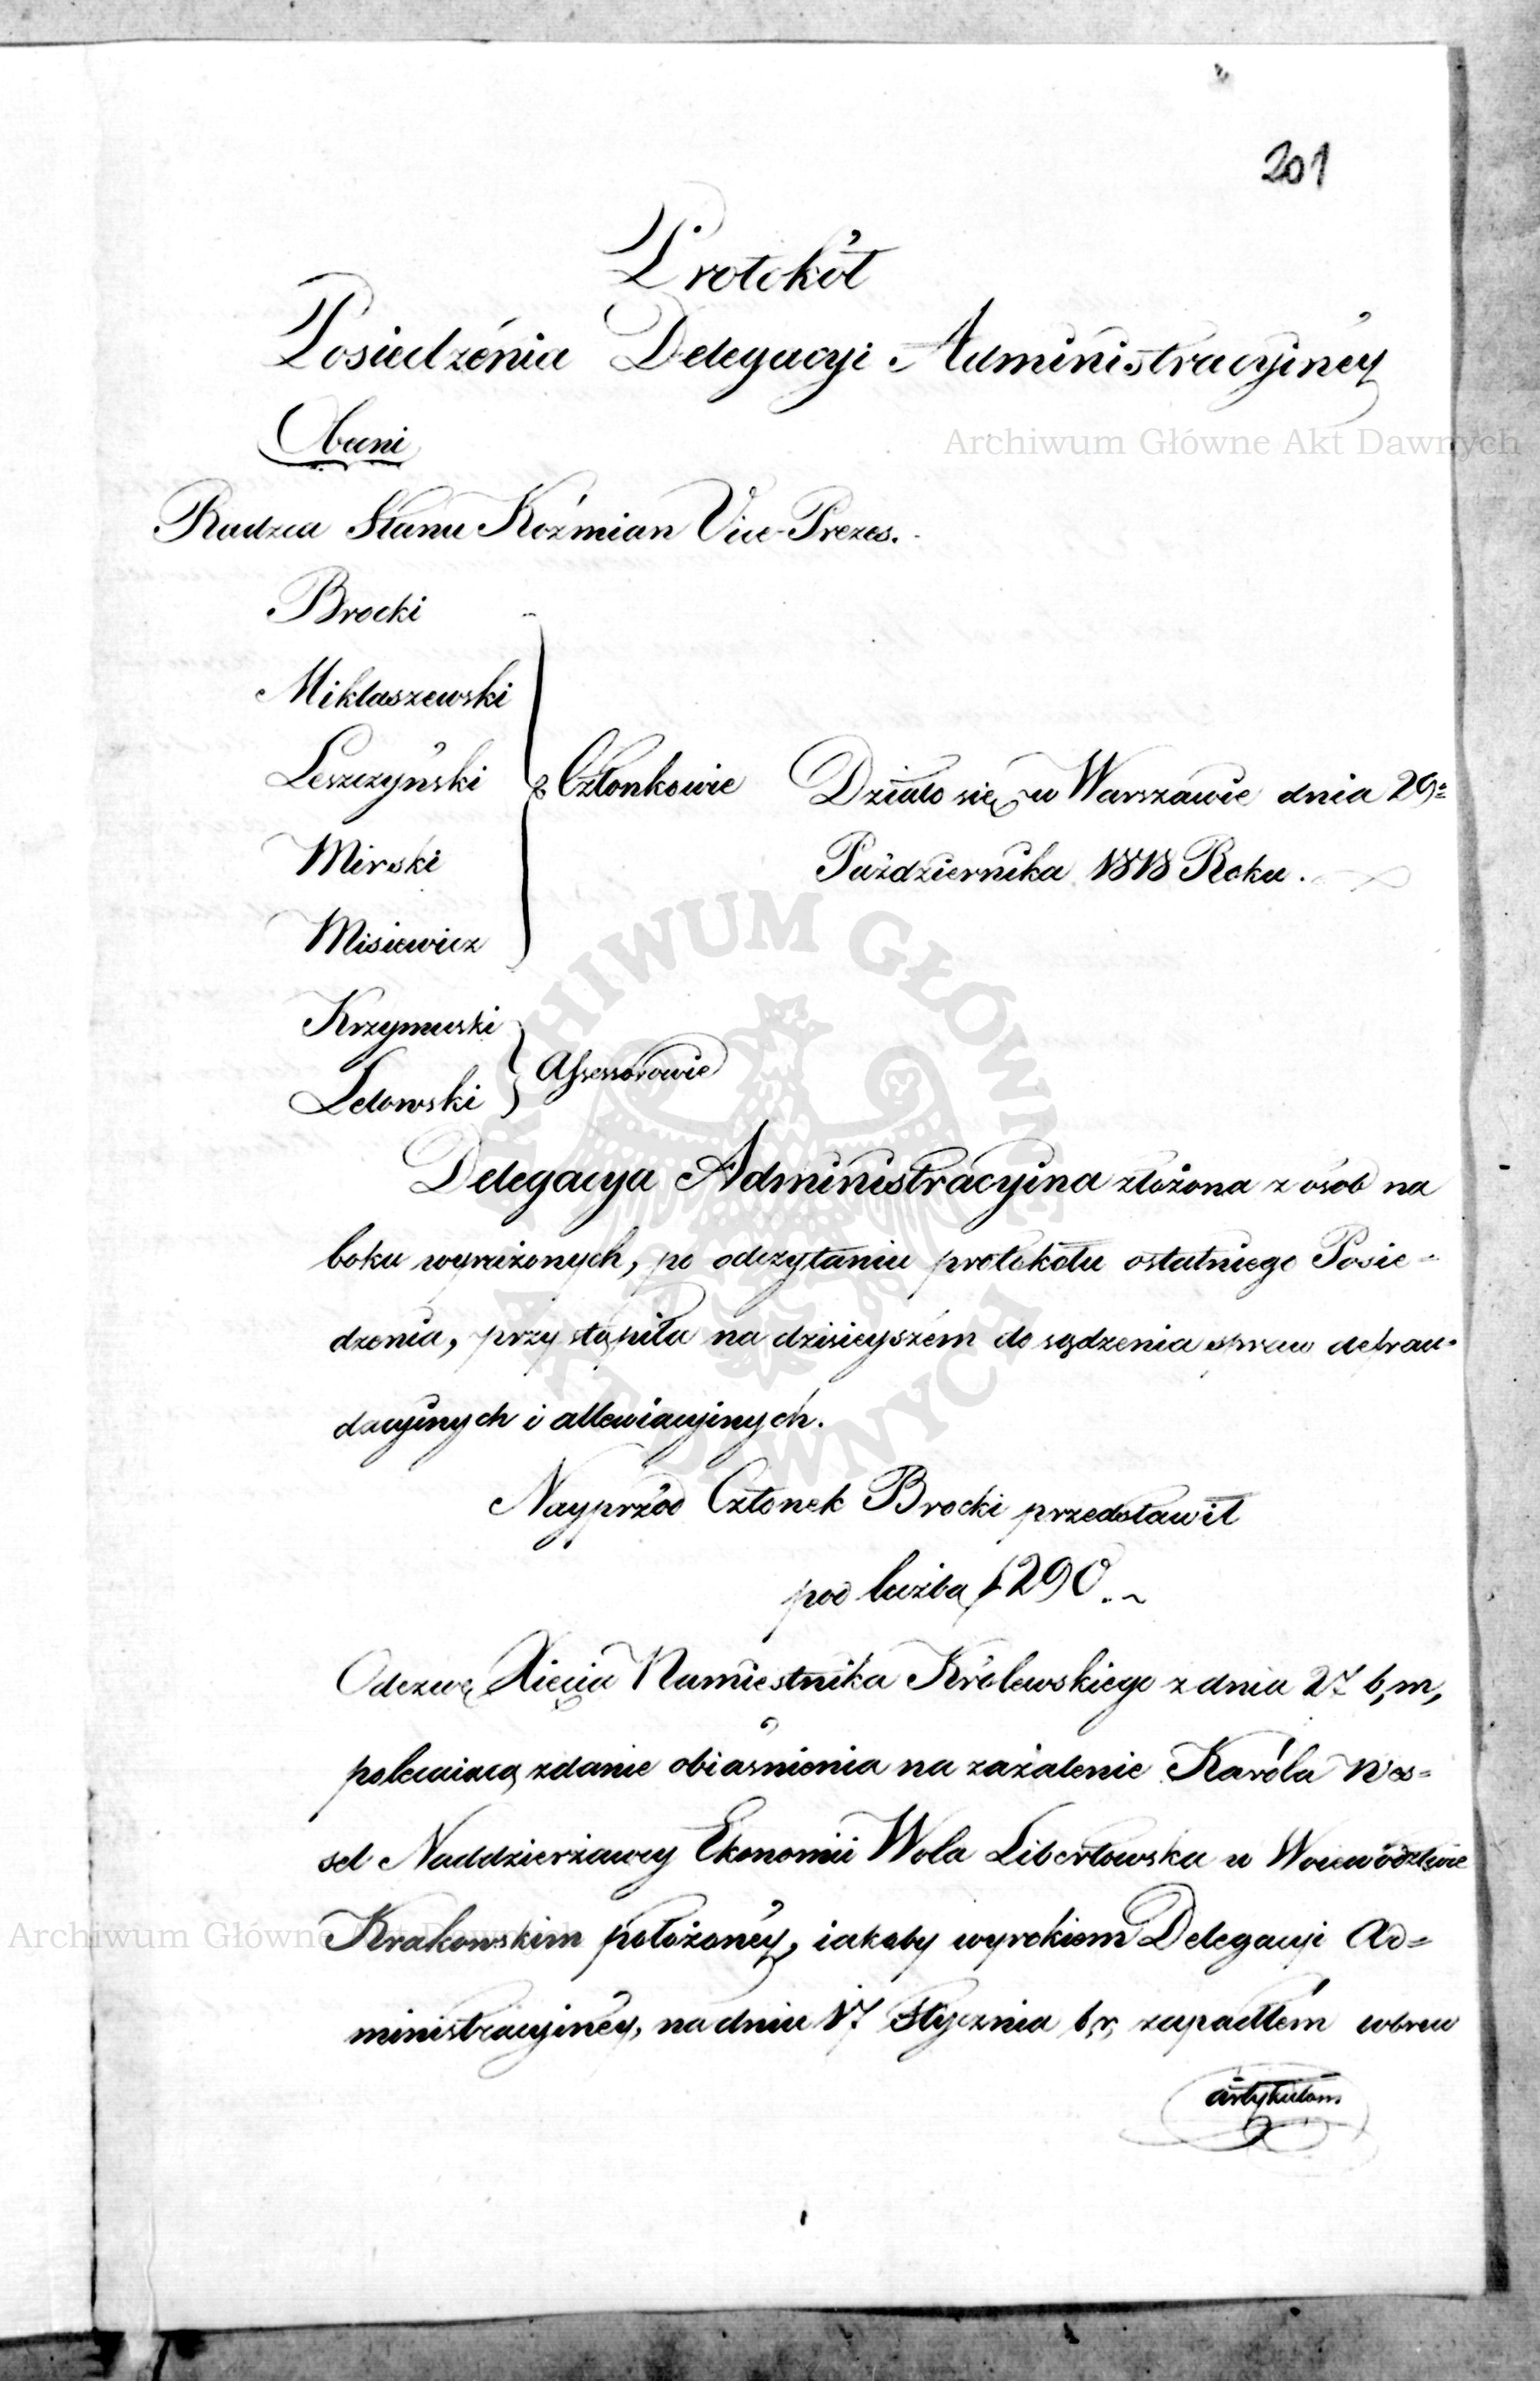 201
Protokół
Posiedzénia Delegacyi Administracyinéy
Obecni
Archiwum Główne Akt Dawnych
Radzca Stanu Koźmian Vice-Prezes.
Brocki
Miklaszewski
Leszczyński
Członkowie
Działo się w Warszawie dnia 29º
Mirski
Października 1818 Roku.
Misiewicz
Krzymuski
Assessorowie
Lelowski
ARCHIWUM GŁÓWNE AKT DAWNYCH
Delegacya Administracyina złożona z osób na
boku wyrażonych, po odczytaniu protokołu ostatniego Posie=
dzenia, przystąpiła na dzisieyszém do sądzenia spraw defrau=
dacyinych i allewiacyinych.
Nayprzód Członek Brocki przedstawił
pod liczbą 1290.
Odezwę Xięcia Namiestnika Królewskiego z dnia 27 b, m,
polecaiącą zdanie obiaśnienia na zażalenie Karóla Wes=
sel Naddzierżawcy Ekonomii Wola Libertowska w Woiewództwie
Archiwum Główne Akt Dawnych
Krakowskim położonéy, iakoby wyrokiem Delegacyi Ad=
ministracyinéy, na dniu 17 Stycznia b, r, zapadłém wbrew
artykułom